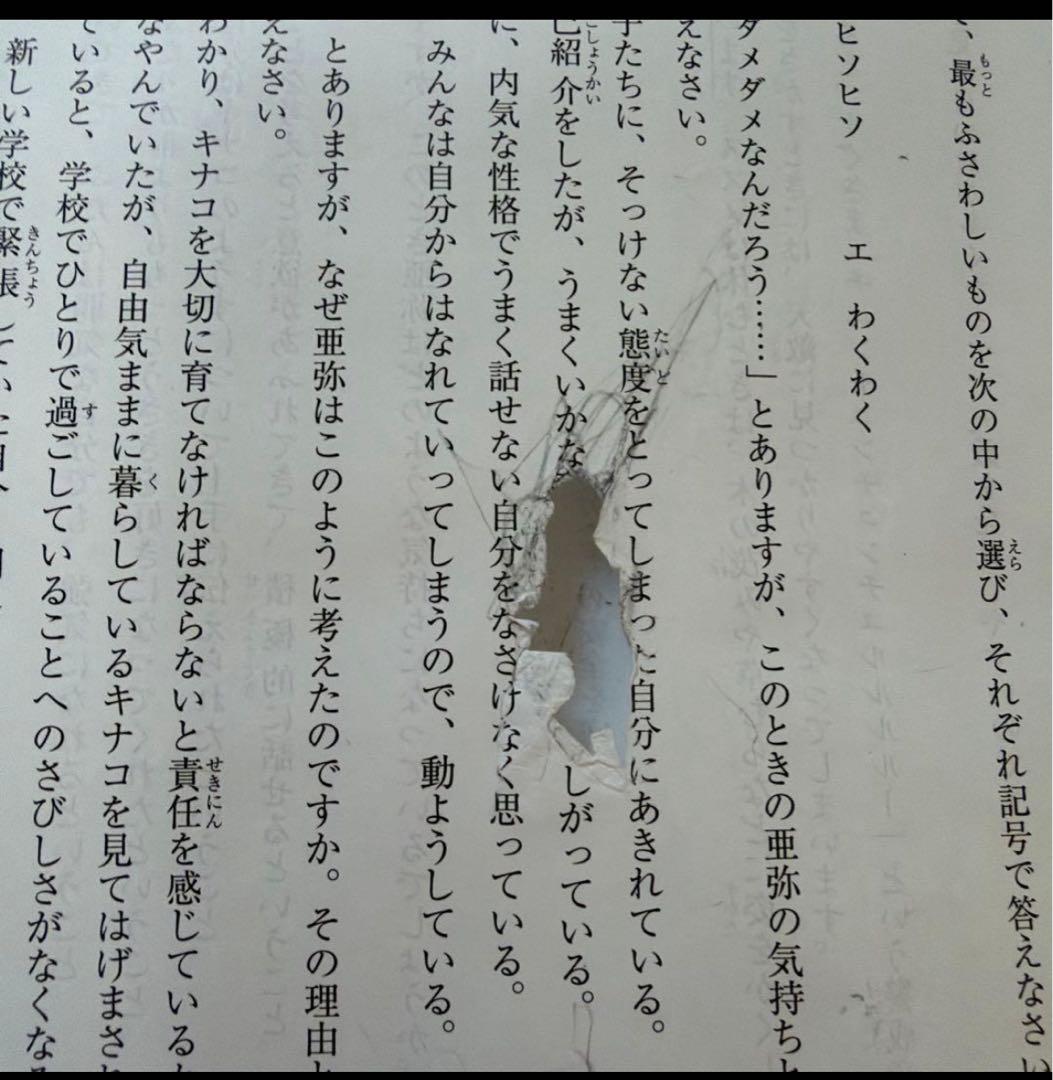 、最もふさわしいものを次の中から選び、それぞれ記号で答えなさい
もっと
えら
ヒソヒソ　エ　わくわく
ダメダメなんだろう……」とありますが、このときの亜弥の気持ちと
えなさい。
子たちに、そっけない態度をとってしまった自分にあきれている。
たいど
己紹介をしたが、うまくいかな
しがっている。
こしょうかい
に、内気な性格でうまく話せない自分をなさけなく思っている。
みんなは自分からはなれていってしまうので、動ようしている。
とありますが、なぜ亜弥はこのように考えたのですか。その理由と
えなさい。
わかり、キナコを大切に育てなければならないと責任を感じている
せきにん
なやんでいたが、自由気ままに暮らしているキナコを見てはげまさ
く
ていると、学校でひとりで過ごしていることへのさびしさがなくなる
す
新しい学校で緊張して
きんちょう